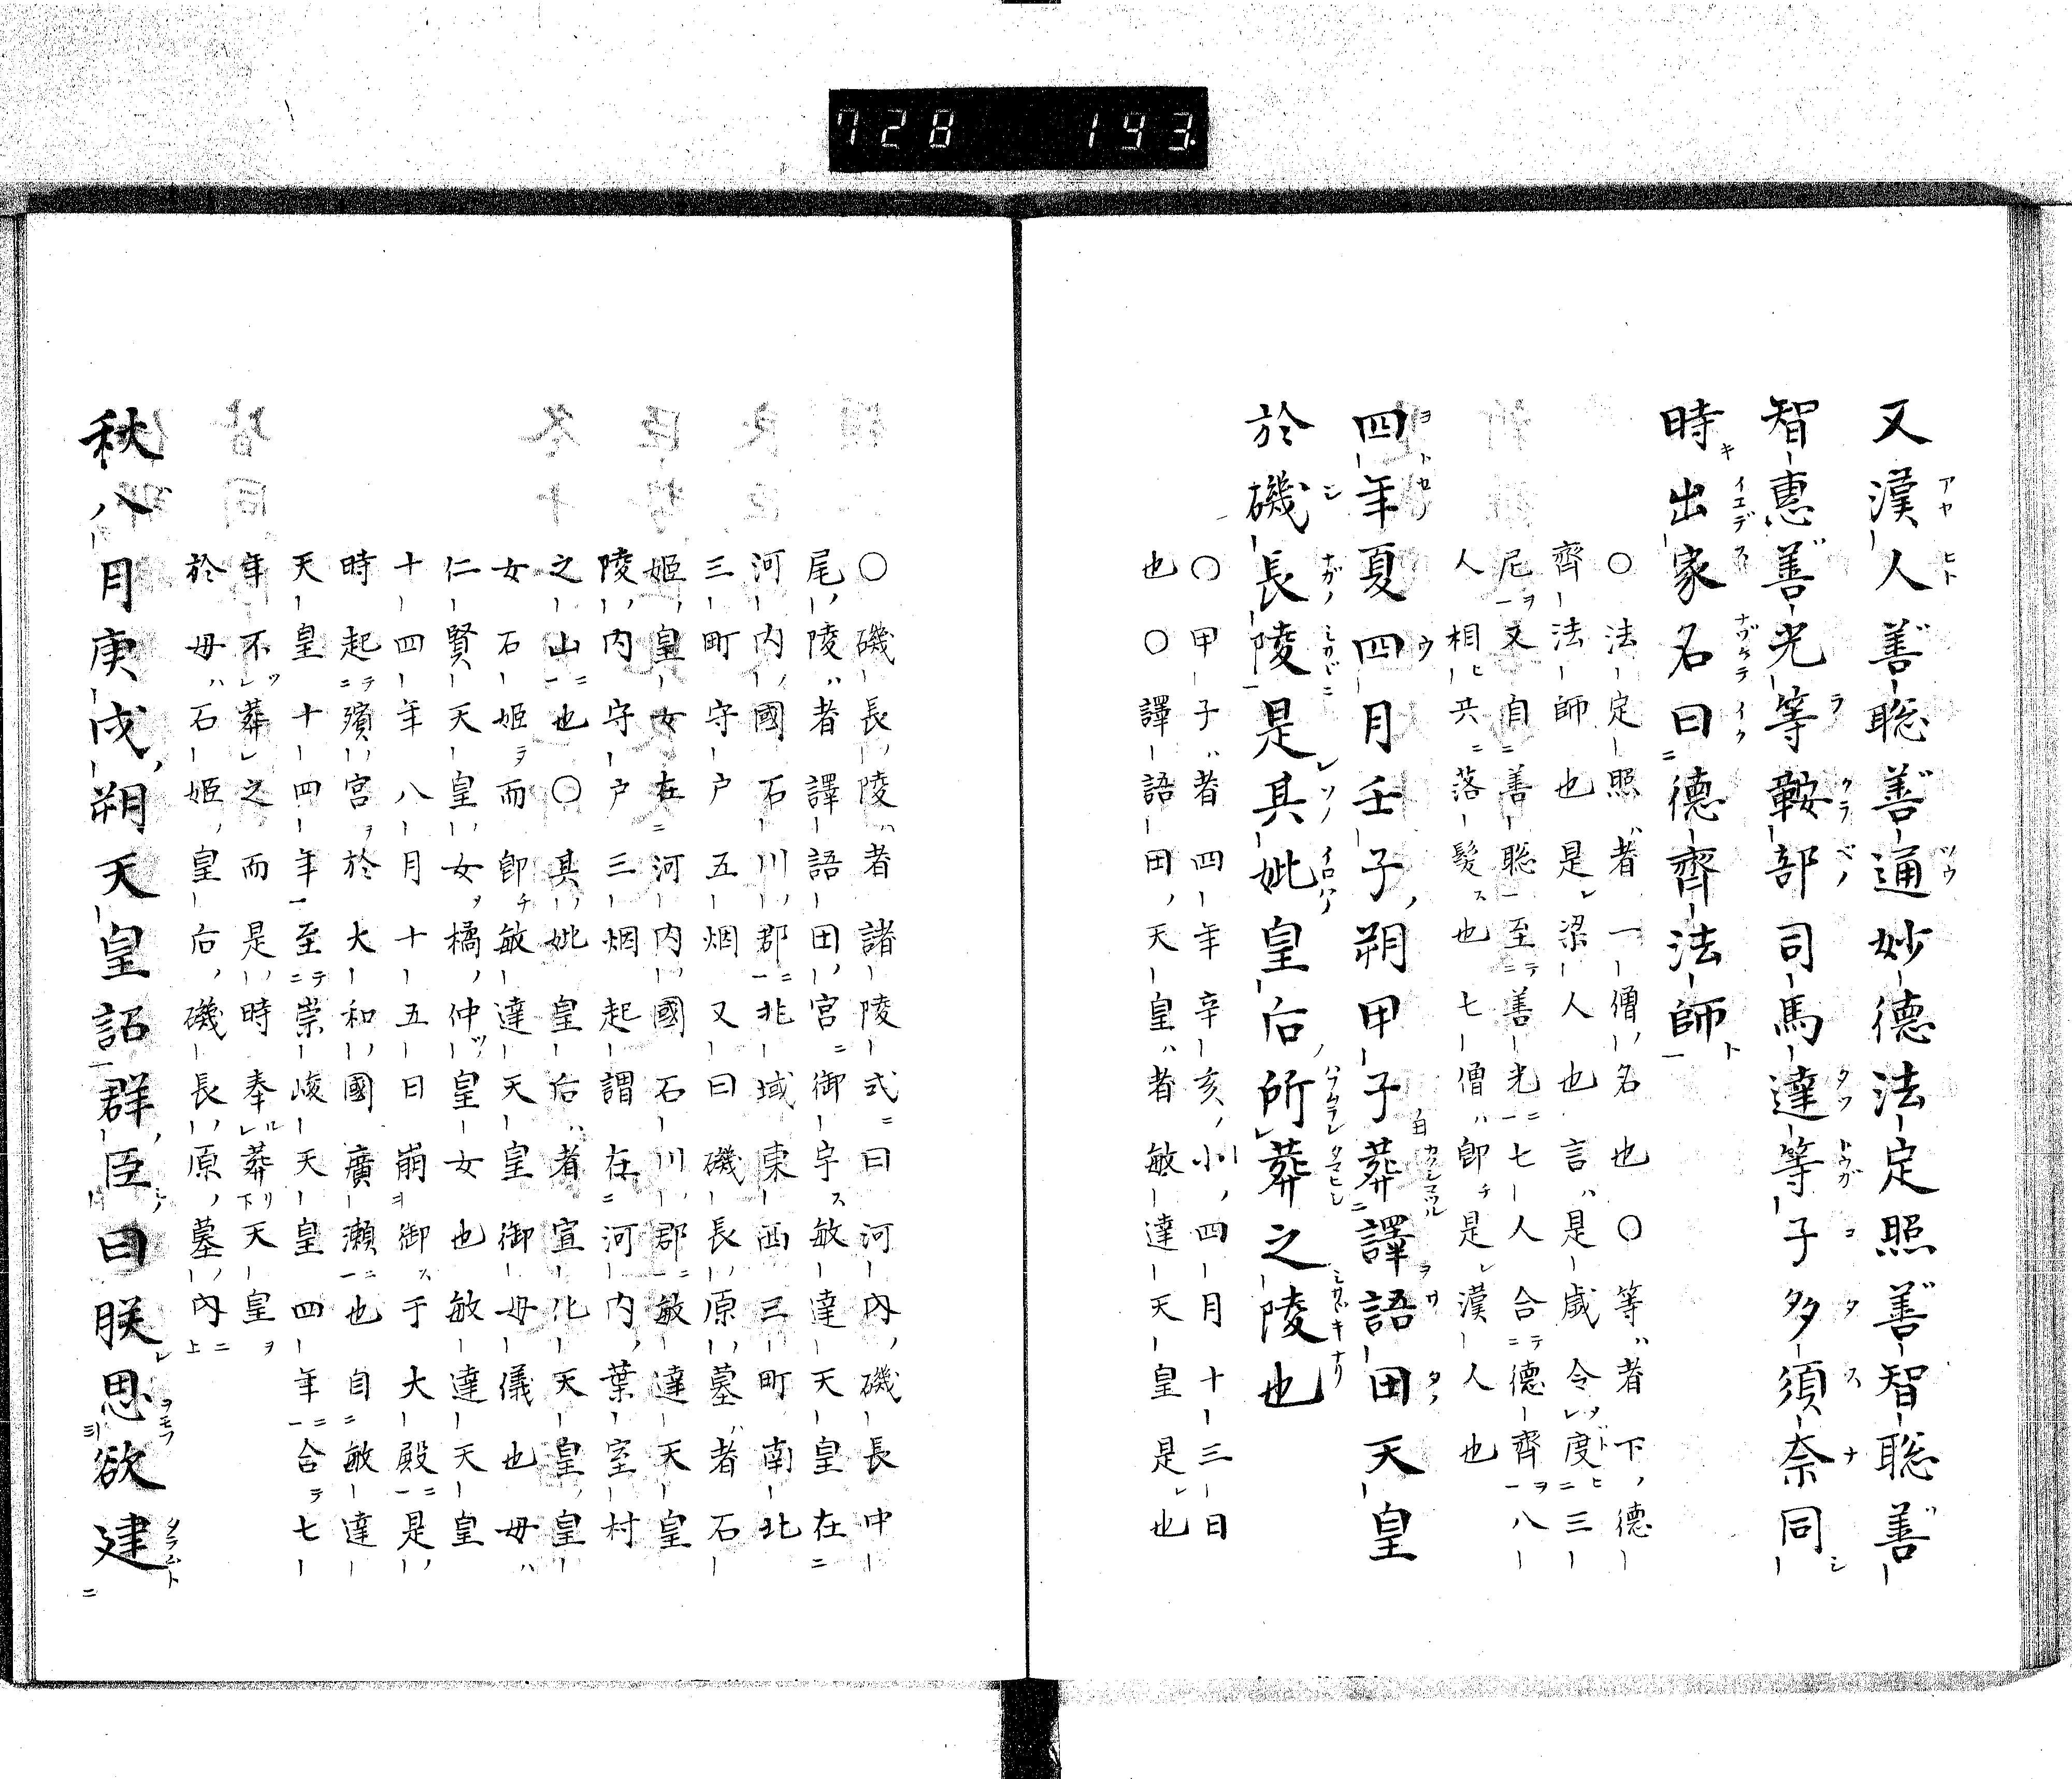 728 193
又漢人善聡善通妙德法定照善智聡善
智惠善光等鞍部司馬達等子多須奈同
時出家名曰德齊法師
○法定照者一僧名也○等者下德
齊法師也是梁人也言是歳令度三
尼又自善聡至善光七人合德齊八
人相共落髮也七僧即是漢人也
四年夏四月壬子朔甲子葬譯語田天皇
於磯長陵是其妣皇后所葬之陵也
○甲子者四年辛亥小四月十三日
也○譯語田天皇者敏達天皇是也
○磯長陵者諸陵式曰河內磯長中
尾陵者譯語田宮御宇敏達天皇在
河內國石川郡北域東西三町南北
三町守戸五烟又曰磯長原墓者石
姬皇女在河內國石川郡敏達天皇
陵內守戸三烟起謂在河內葉室村
之山也○其妣皇后者宣化天皇皇
女石姬而即敏達天皇御母儀也母
仁賢天皇女橘仲皇女也敏達天皇
十四年八月十五日崩御于大殿是
時起殯宮於大和國廣瀬也自敏達
天皇十四年至崇峻天皇四年合七
年不葬之而是時奉葬天皇
於母石姬皇后磯長原墓內
秋八月庚戌朔天皇詔群臣曰朕思欲建